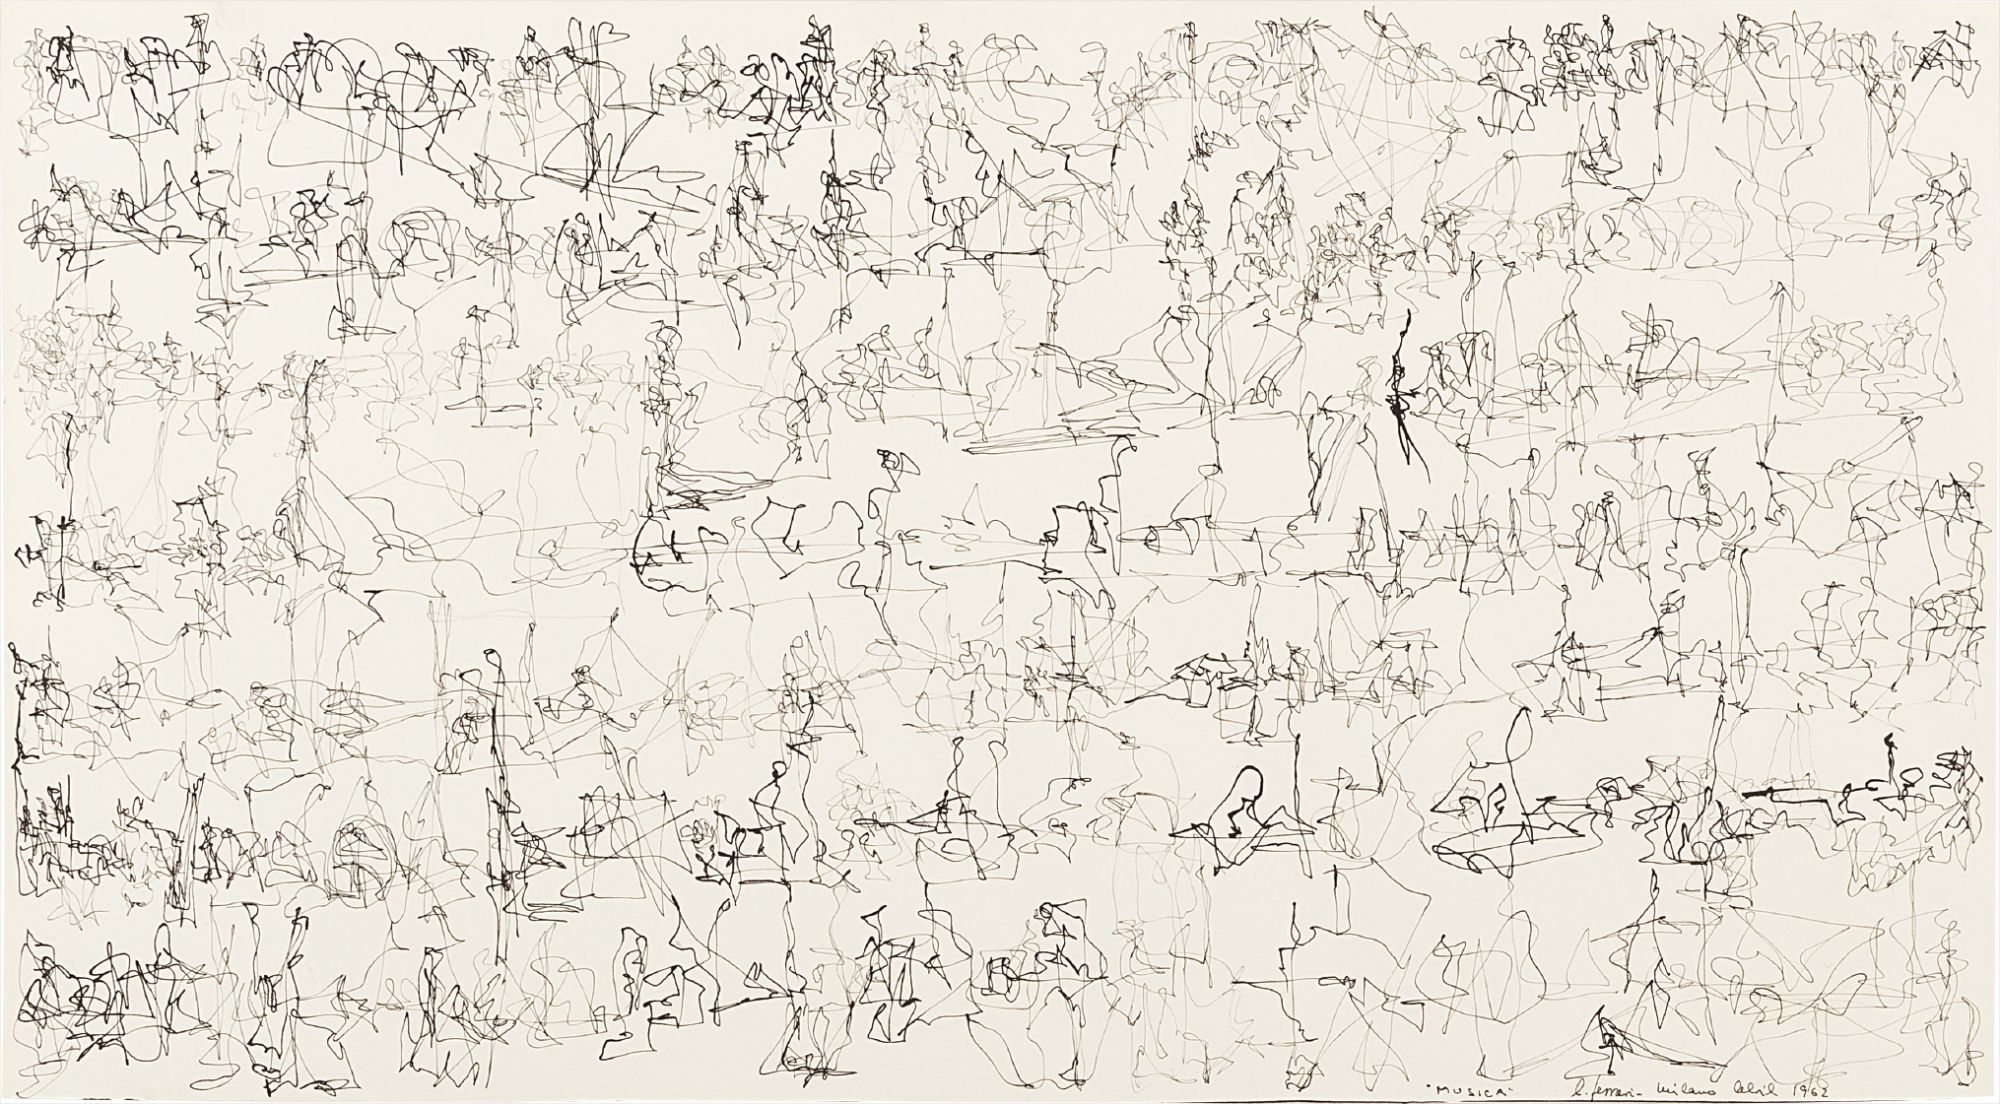 "MUSICA" L. Ferrari - Milano Abril 1962